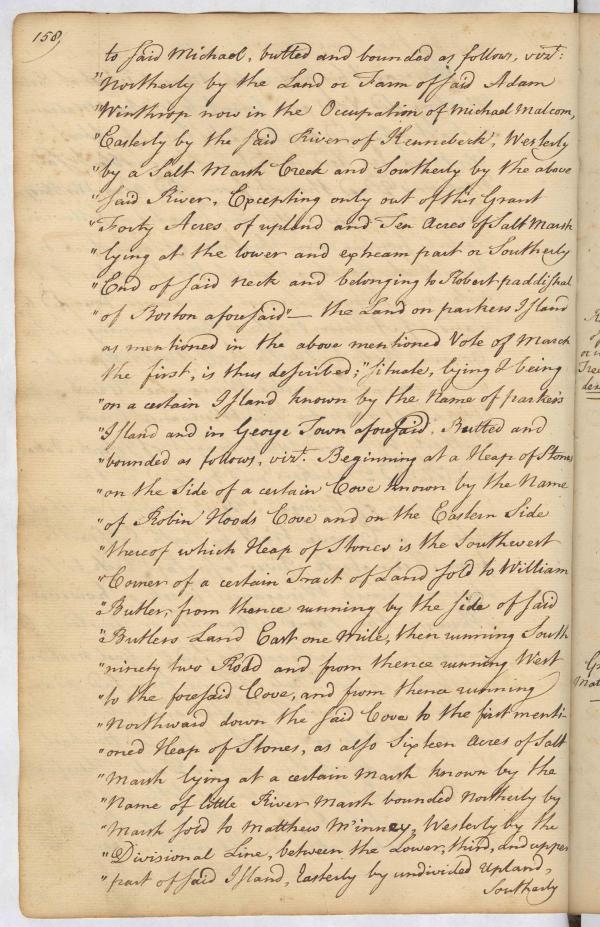 158,
to said Michael, butted and bounded as follows, vizt:
"Northerly by the Land or Farm of said Adam
"Winthrop now in the Occupation of Michael Malcom,
"Easterly by the said River of Kennebeck, Westerly
"by a Salt Marsh Creek and Southerly by the above
"said River, Excepting only out of this Grant
"Forty Acres of upland and Ten Acres of Salt Marsh
"lying at the lower and extream part or Southerly
"End of said neck and belonging to Robert paddishal
"of Boston aforesaid"— the Land on parkers Island
as mentioned in the above mentioned Vote of March
the first, is thus described; "situate, lying & being
"on a certain Island known by the Name of parkers
"Island and in George Town aforesaid. Butted and
"bounded as follows, vizt. Beginning at a Heap of Stones
"on the Side of a certain Cove known by the Name
"of Robin Hoods Cove and on the Eastern Side
"thereof which Heap of Stones is the Southwest
"Corner of a certain Tract of Land sold to William
"Butler, from thence running by the side of said
"Butlers Land East one Mile, then running South
"ninety two Rodd and from thence running West
"to the foresaid Cove, and from thence running
"Northward down the said Cove to the first menti-
"oned Heap of Stones, as also Sixteen Acres of Salt
"Marsh lying at a certain Marsh known by the
"Name of little River Marsh bounded Northerly by
"Marsh sold to Matthew M'inney, Westerly by the
"Divisional Line, between the Lower, third, and upper
"part of said Island, Easterly by undivided Upland,
Southerly